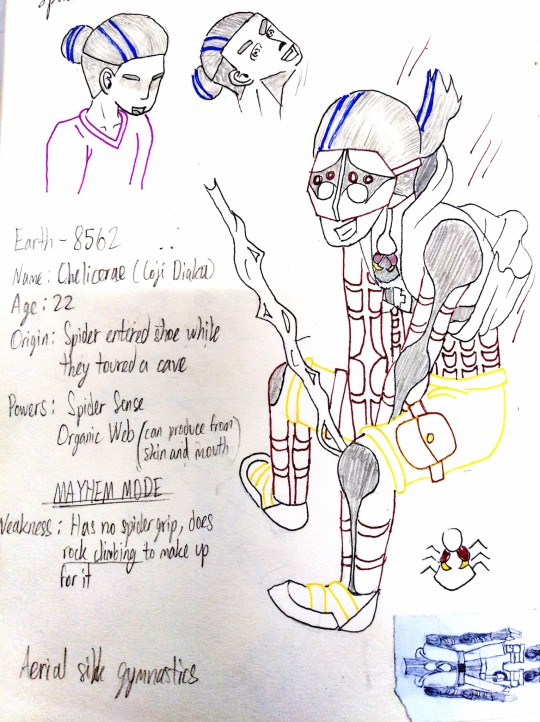 Earth - 8562
Name: Chelicerae (Coji Diaku)
Age: 22
Origin: Spider entered shoe while
they toured a cave
Powers: Spider Sense
Organic Web (can produce from
skin and mouth)
MAYHEM MODE
Weakness: Has no spider grip, does
rock climbing to make up
for it
Aerial silk gymnastics